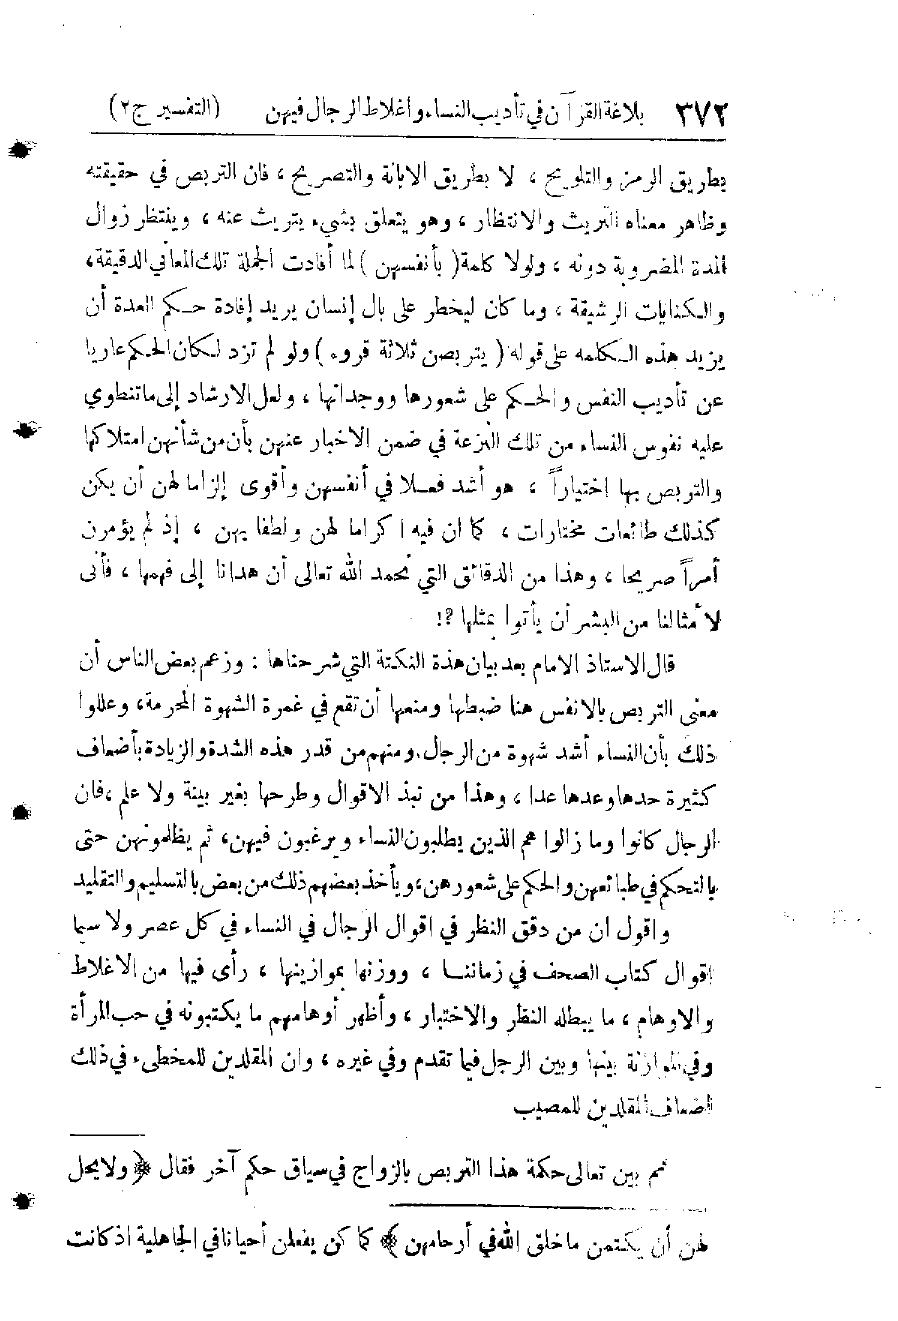 ٣٧٢ بلاغة القرآن في تأديب النساء واغلاط الرجال فيهن (التفسير ج٢)
بطريق الرمز والتلويح ، لا بطريق الابانة والتصريح ، فان التربص في حقيقته
وظاهر معناه التريث والانتظار ، وهو يتعلق بشيء يتريث عنه ، وينتظر زوال
المدة المضروبة دونه ، ولولا كلمة ( بأنفسهن ) لما أفادت الجملة تلك المعاني الدقيقة،
والكنايات الرشيقة ، وما كان ليخطر على بال إنسان يريد إفادة حكم العدة أن
يزيد هذه الكلمه على قوله ( يتربصن ثلاثة قروء ) ولو لم تزد لكان الحكم عاريا
عن تأديب النفس والحكم على شعورها ووجدانها ، ولعل الارشاد إلى ما تنطوي
عليه نفوس النساء من تلك النزعة في ضمن الاخبار عنهن بأن من شأنهن امتلاكها
والتربص بها اختياراً ، هو أشد فعلا في أنفسهن وأقوى إلزاما لهن أن يكن
كذلك طائعات مختارات ، كما ان فيه اكراما لهن ولطفا بهن ، إذ لم يؤمرن
أمراً صريحا ، وهذا من الدقائق التي نحمد الله تعالى أن هدانا إلى فهمها ، فأنى
لأمثالنا من البشر أن يأتوا بمثلها ؟!
قال الاستاذ الامام بعد بيان هذة النكتة التي شرحناها : وزعم بعض الناس أن
معنى التربص بالانفس هنا ضبطها ومنعها أن تقع في غمرة الشهوة المحرمة، وعللوا
ذلك بأن النساء أشد شهوة من الرجال. ومنهم من قدر هذه الشدة والزيادة بأضعاف
كثيرة حدها وعدها عدا ، وهذا من نبذ الاقوال وطرحها بغير بينة ولا علم ، فان
الرجال كانوا وما زالوا هم الذين يطلبون النساء ويرغبون فيهن، ثم يظلمونهن حتى
بالتحكم في طبائعهن والحكم على شعورهن، ويأخذ بعضهم ذلك من بعض بالتسليم والتقليد
واقول ان من دقق النظر في اقوال الرجال في النساء في كل عصر ولا سيما
اقوال كتاب الصحف في زماننا ، ووزنها بموازينها ، رأى فيها من الاغلاط
والاوهام ، ما يبطله النظر والاختبار ، وأظهر أوهامهم ما يكتبونه في حب المرأة
وفي الموازنة بينها وبين الرجل فيما تقدم وفي غيره ، وان المقلدين للمخطىء في ذلك
اضعاف المقلدين للمصيب
ثم بين تعالى حكمة هذا التربص بالزواج في سياق حكم آخر فقال ﴿ ولا يحل
لهن أن يكتمن ما خلق الله في أرحامهن ﴾ كما كن يفعلن أحيانا في الجاهلية اذ كانت